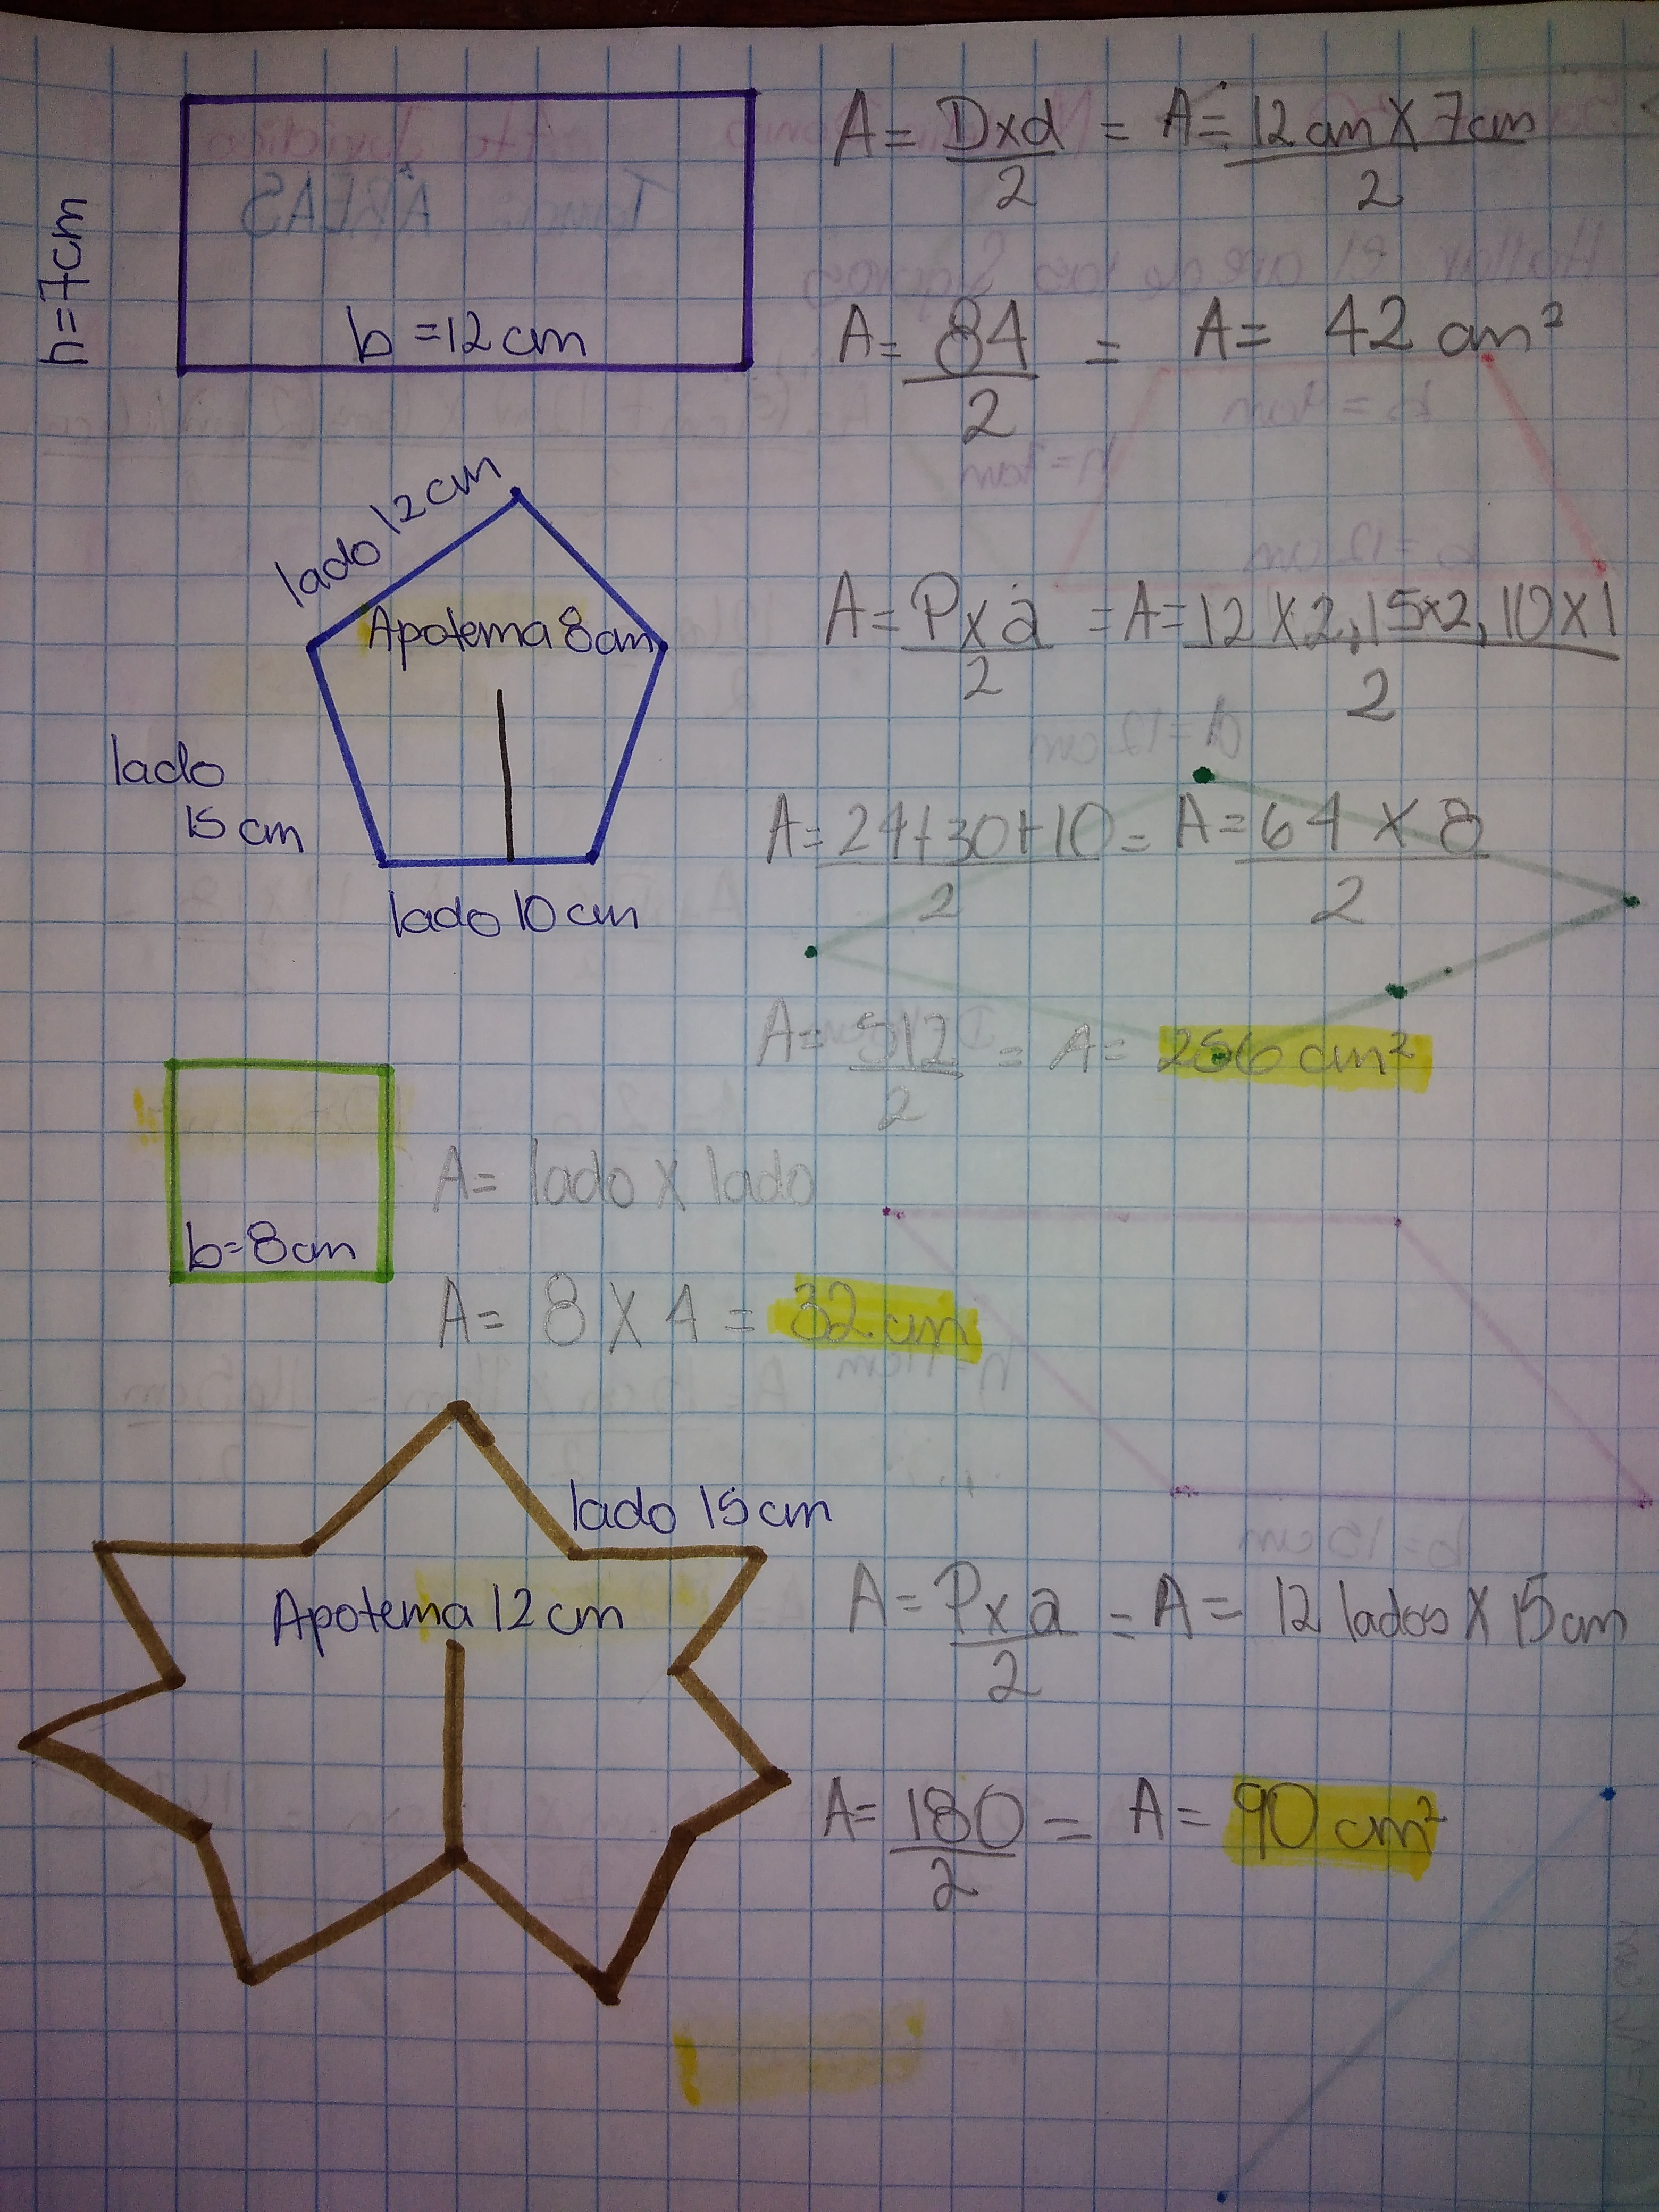 h=7cm
b=12cm
A= Dxd/2 = A= 12cm X 7cm/2
A= 84/2 = A= 42 cm²
lado 12cm
Apotema 8cm
lado
15 cm
lado 10 cm
A= Pxa/2 = A= 12 X2, 15x2, 10x1/2
A= 24+30+10/2 = A= 64 X 8/2
A= 512/2 = A= 256 cm²
b=8cm
A= lado X lado
A= 8 X 4 = 32 cm
lado 15cm
Apotema 12cm
A= Pxa/2 = A= 12 lados X 15cm
A= 180/2 = A= 90 cm²